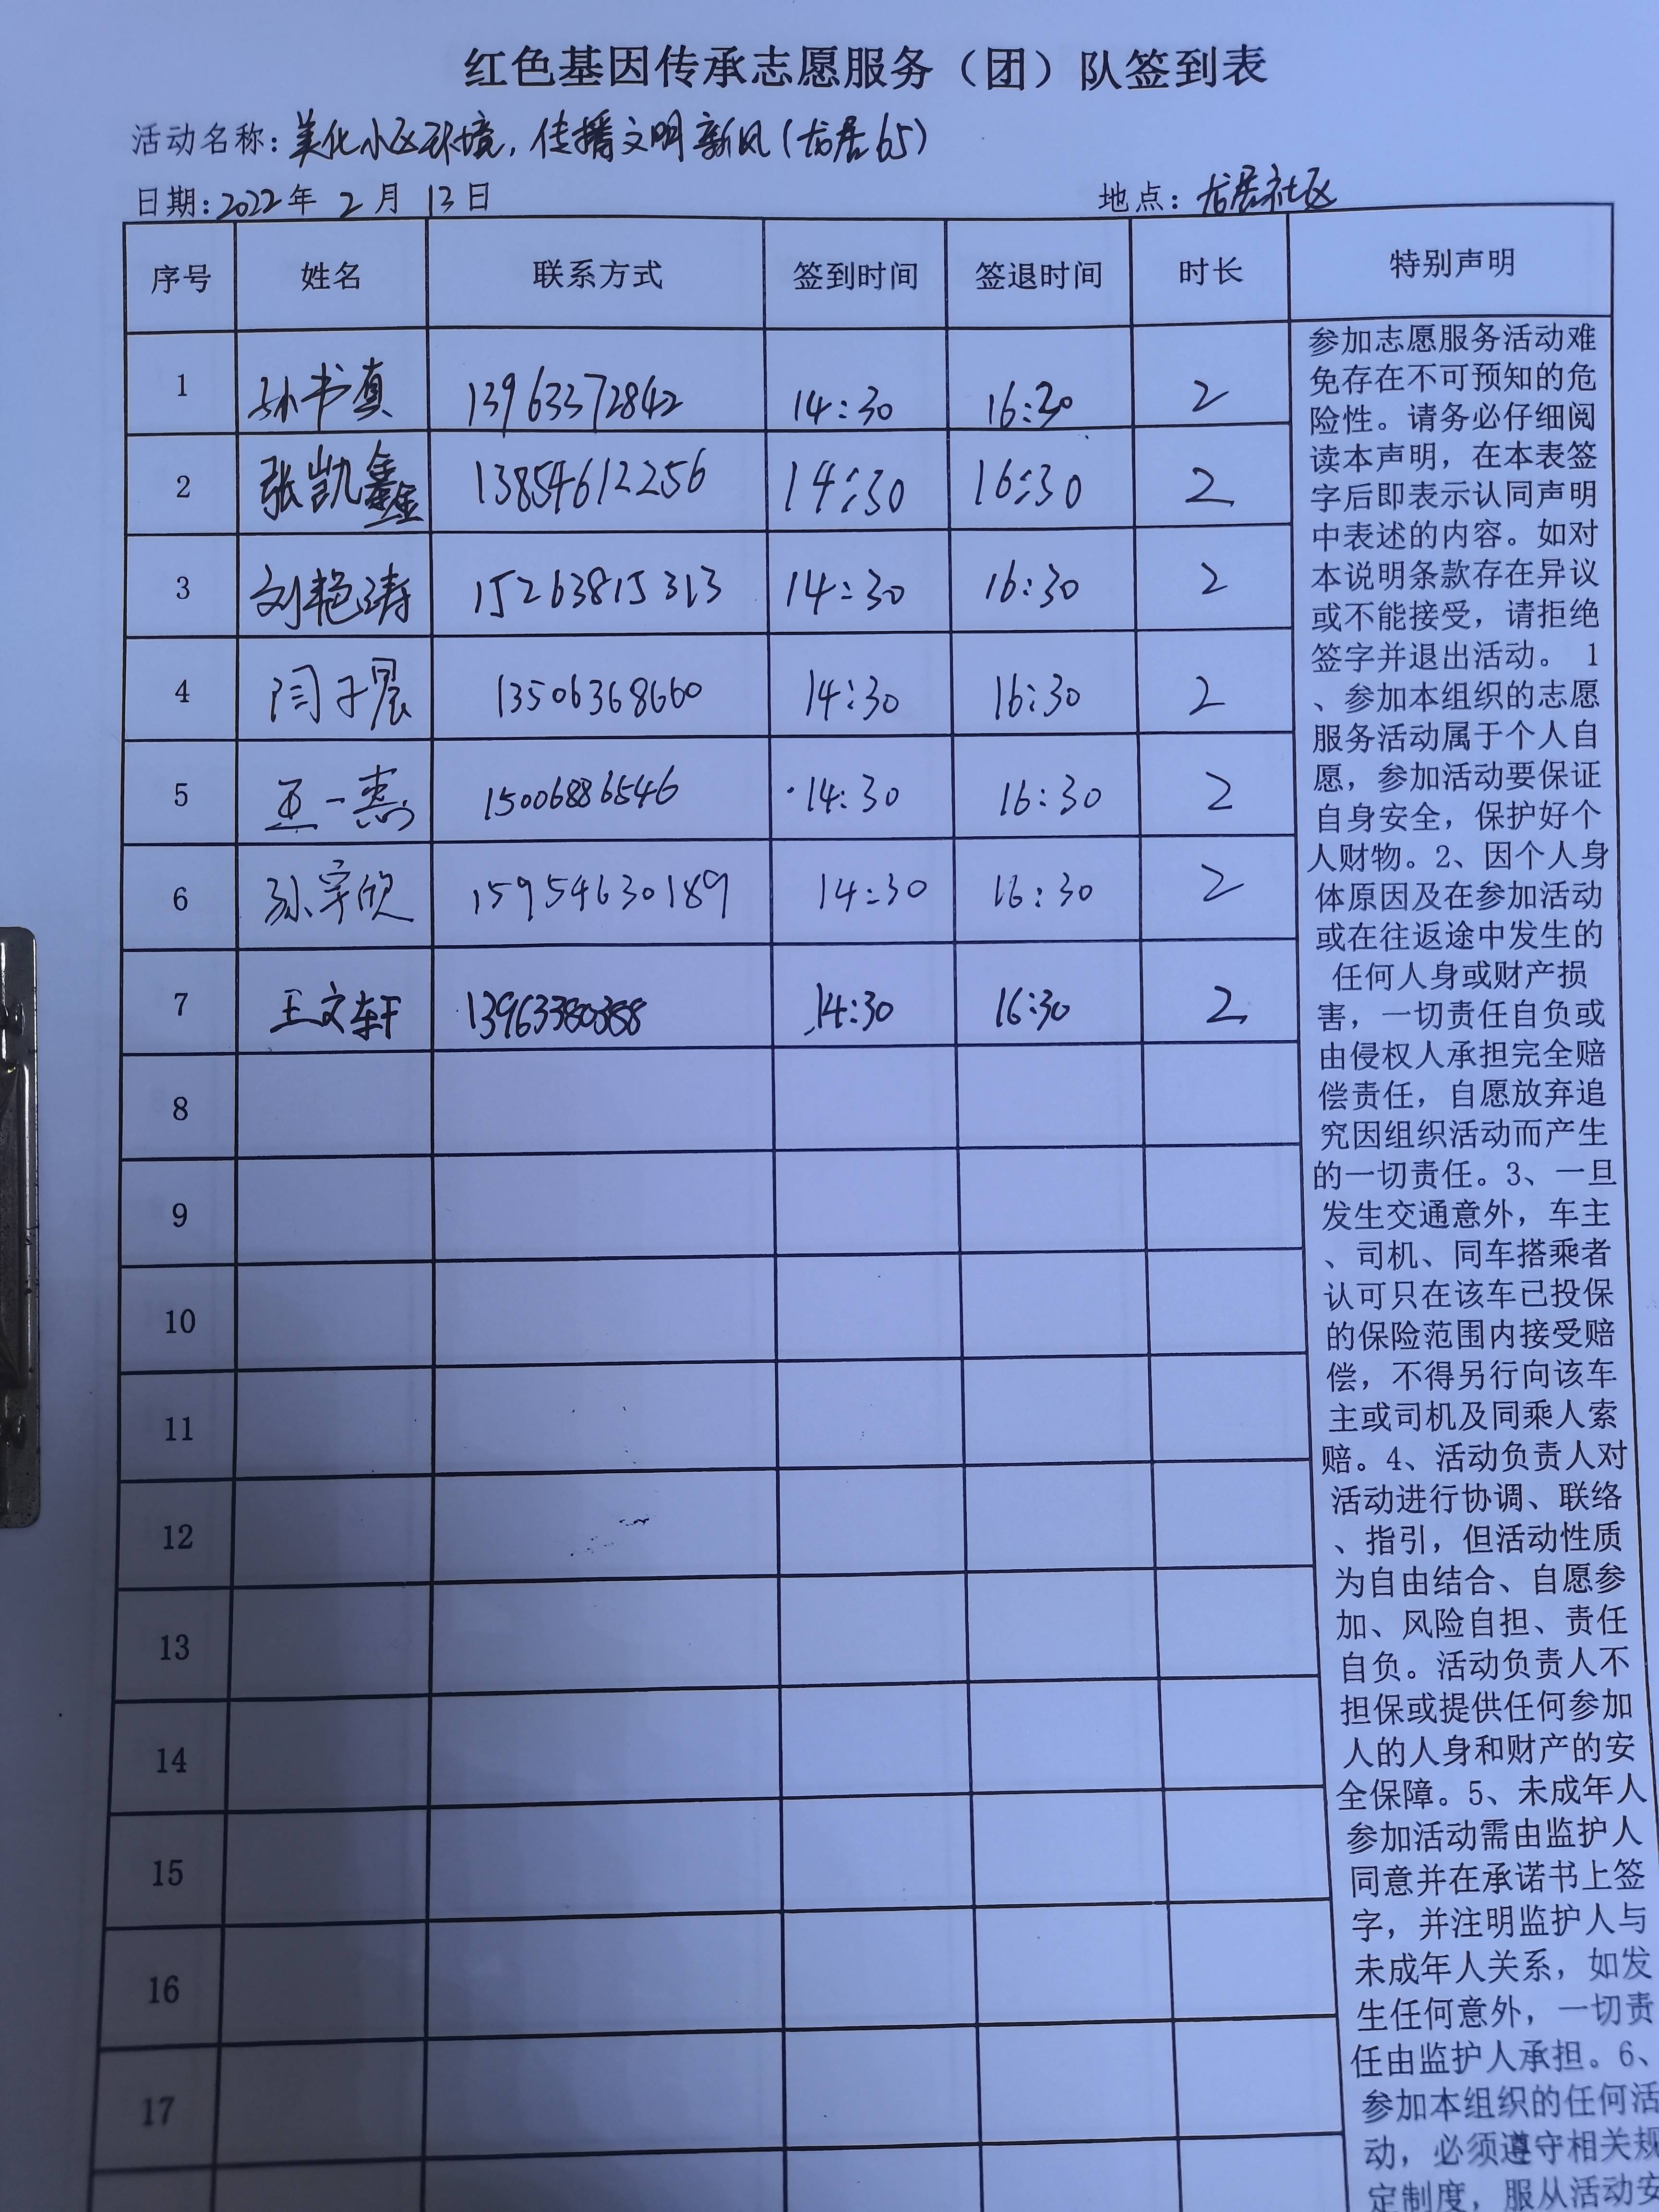 红色基因传承志愿服务（团）队签到表
活动名称：美化小区环境，传播文明新风（龙居65）
日期：2022年 2 月 13日 地点：龙居社区
序号 姓名 联系方式 签到时间 签退时间 时长 特别声明
1 孙书真 13963372842 14:30 16:30 2
2 张凯鑫 13854612256 14:30 16:30 2
3 刘艳涛 15263815313 14:30 16:30 2
4 闫子晨 13506368660 14:30 16:30 2
5 王一 15006886546 14:30 16:30 2
6 孙宇欣 15954630189 14:30 16:30 2
7 王文轩 13963380388 14:30 16:30 2
8
9
10
11
12
13
14
15
16
17
参加志愿服务活动难
免存在不可预知的危
险性。请务必仔细阅
读本声明，在本表签
字后即表示认同声明
中表述的内容。如对
本说明条款存在异议
或不能接受，请拒绝
签字并退出活动。 1
、参加本组织的志愿
服务活动属于个人自
愿，参加活动要保证
自身安全，保护好个
人财物。2、因个人身
体原因及在参加活动
或在往返途中发生的
任何人身或财产损
害，一切责任自负或
由侵权人承担完全赔
偿责任，自愿放弃追
究因组织活动而产生
的一切责任。3、一旦
发生交通意外，车主
、司机、同车搭乘者
认可只在该车已投保
的保险范围内接受赔
偿，不得另行向该车
主或司机及同乘人索
赔。4、活动负责人对
活动进行协调、联络
、指引，但活动性质
为自由结合、自愿参
加、风险自担、责任
自负。活动负责人不
担保或提供任何参加
人的人身和财产的安
全保障。5、未成年人
参加活动需由监护人
同意并在承诺书上签
字，并注明监护人与
未成年人关系，如发
生任何意外，一切责
任由监护人承担。6、
参加本组织的任何活
动，必须遵守相关规
定制度，服从活动安